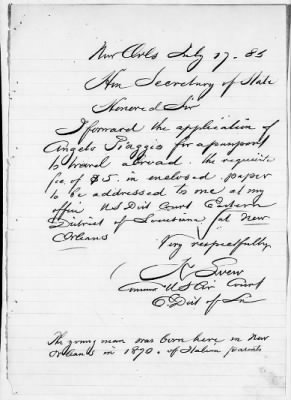 New Orls July 17. 85
Hon Secretary of State
Honored Sir
I forward the application of
Angelo Piaggio for a passport
to travel abroad. the requisite
fee of $5. in enclosed. paper
to be addressed to me at my
office U S Dist Court Eastern
District of Louisiana at New
Orleans
Very respectfully.
Commr US Cir Court
E Dist of La
The young man was born here in New
Orleans in 1870. of Italian parents